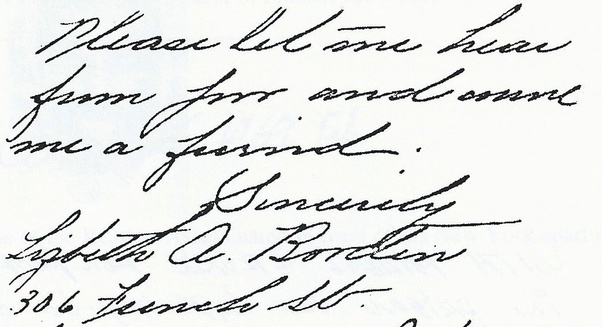 Please let me hear
from you and count
me a friend.
Sincerely
Lizbeth A. Borden
306 French St.